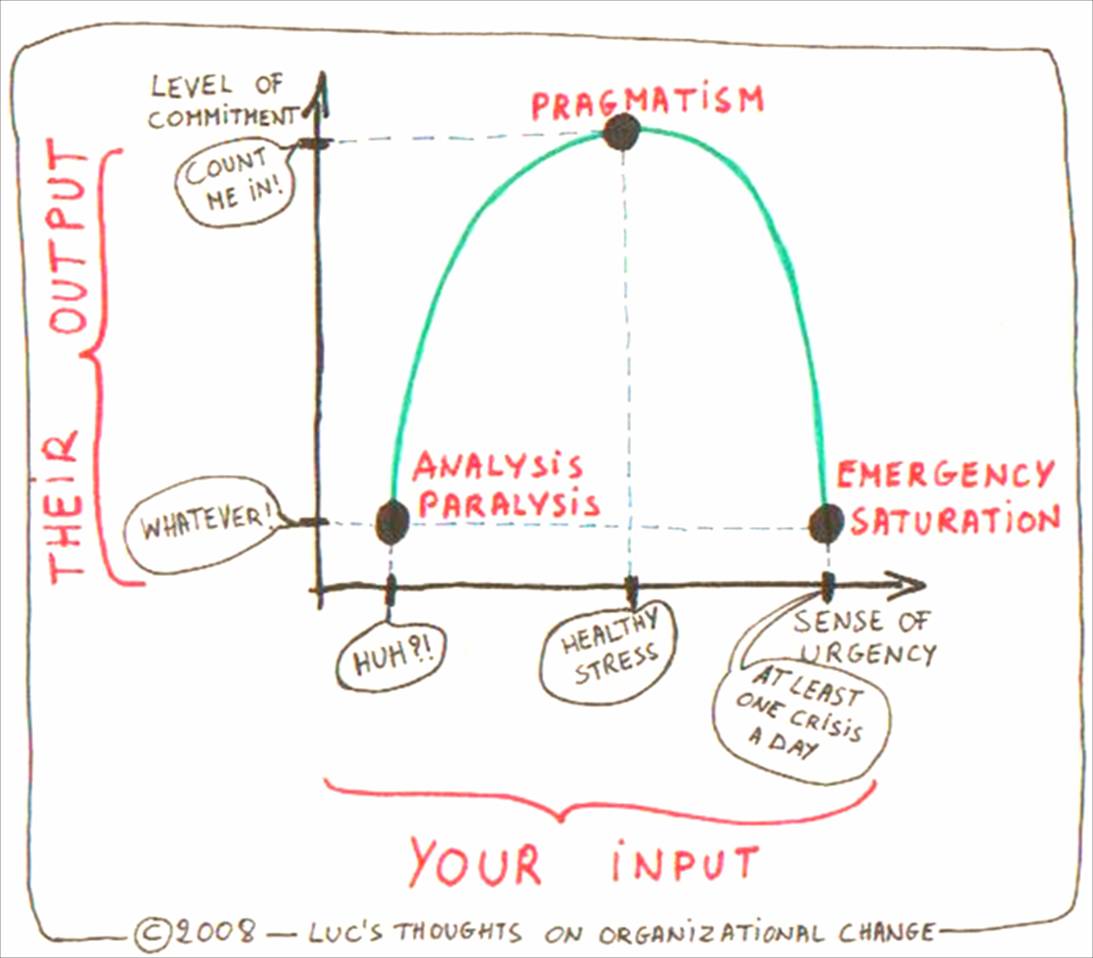 LEVEL OF
COMMiTMENT
PRAGMATiSM
COUNT
ME iN!
THEiR OUTPUT
ANALYSiS
PARALYSiS
EMERGENCY
SATURATiON
WHATEVER!
HUH?!
HEALTHY
STRESS
SENSE OF
URGENCY
AT LEAST
ONE CRiSiS
A DAY
YOUR iNPUT
©2008 — LUC'S THOUGHTS ON ORGANiZATiONAL CHANGE